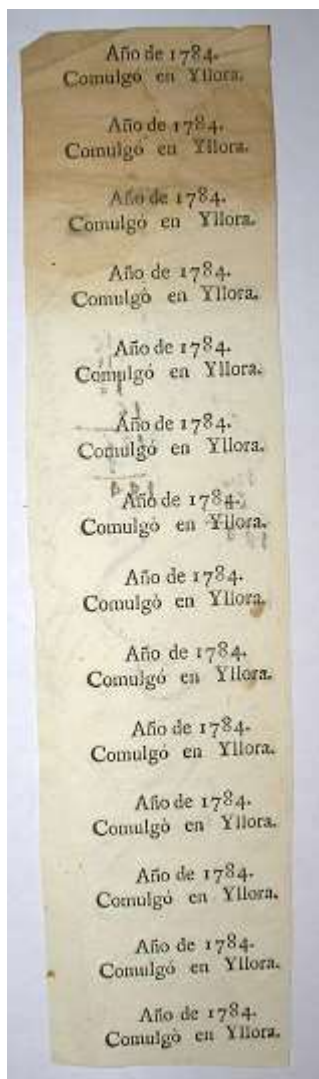 Año de 1784.
Comulgó en Yllora.
Año de 1784.
Comulgó en Yllora.
Año de 1784.
Comulgó en Yllora.
Año de 1784.
Comulgó en Yllora.
Año de 1784.
Comulgó en Yllora.
Año de 1784.
Comulgó en Yllora.
Año de 1784.
Comulgó en Yllora.
Año de 1784.
Comulgó en Yllora.
Año de 1784.
Comulgó en Yllora.
Año de 1784.
Comulgó en Yllora.
Año de 1784.
Comulgó en Yllora.
Año de 1784.
Comulgó en Yllora.
Año de 1784.
Comulgó en Yllora.
Año de 1784.
Comulgó en Yllora.